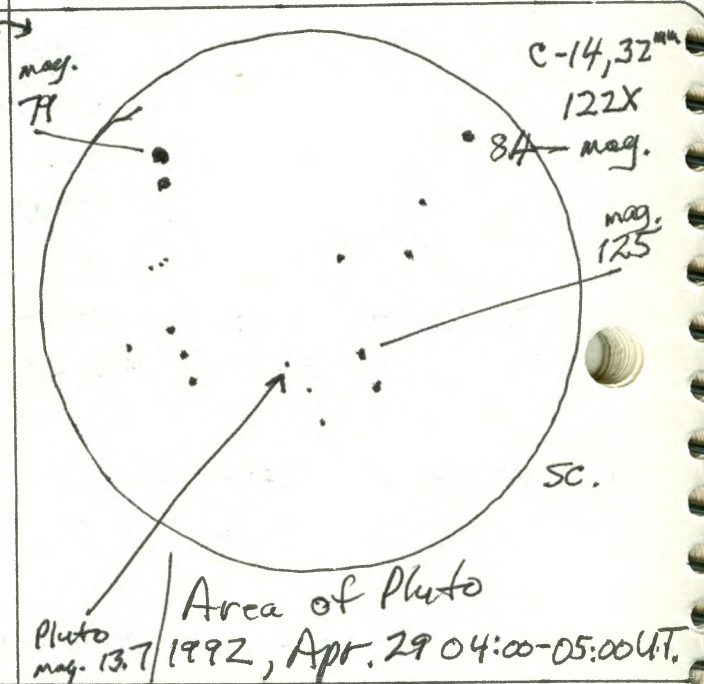 mag.
79
C-14, 32mm
122X
84 mag.
mag.
125
SC.
Pluto
mag. 13.7
Area of Pluto
1992, Apr. 29 04:00-05:00 U.T.